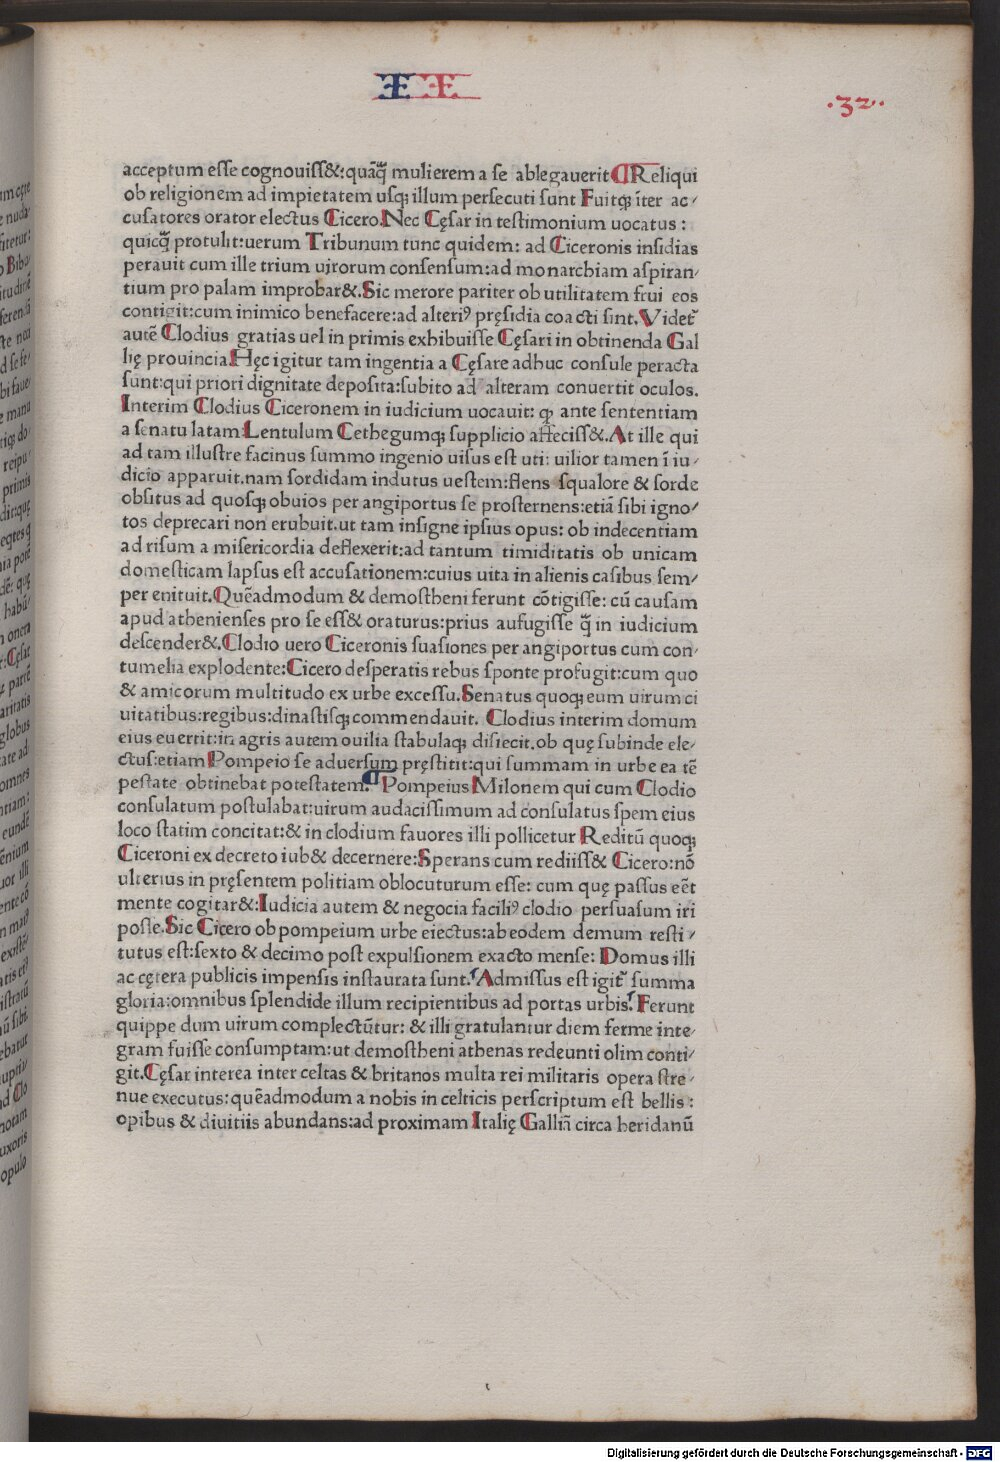 II
.32.
acceptum esse cognouiss&:quāq̃ mulierem a se ablegauerit ¶Reliqui
ob religionem ad impietatem usq; illum persecuti sunt Fuitq; īter ac/
cusatores orator electus Cicero.Nec Cęsar in testimonium uocatus :
quicq̃ protulit:uerum Tribunum tunc quidem: ad Ciceronis insidias
perauit cum ille trium uirorum consensum:ad monarchiam aspiran/
tium pro palam improbar&.Sic merore pariter ob utilitatem frui eos
contigit:cum inimico benefacere:ad alteriꝰ pręsidia coacti sint.Videt᷑
autē Clodius gratias uel in primis exhibuisse Cęsari in obtinenda Gal
lię prouincia.Hęc igitur tam ingentia a Cęsare adhuc consule peracta
sunt:qui priori dignitate deposita:subito ad alteram conuertit oculos.
Interim Clodius Ciceronem in iudicium uocauit: ꝙ ante sententiam
a senatu latam:Lentulum Cethegumq; supplicio affeciss&.At ille qui
ad tam illustre facinus summo ingenio uisus est uti: uilior tamen ī iu/
dicio apparuit.nam sordidam indutus uestem:flens squalore & sorde
obsitus ad quosq; obuios per angiportus se prosternens:etiā sibi igno/
tos deprecari non erubuit.ut tam insigne ipsius opus: ob indecentiam
ad risum a misericordia deflexerit:ad tantum timiditatis ob unicam
domesticam lapsus est accusationem:cuius uita in alienis casibus sem/
per enituit.Quēadmodum & demostheni ferunt cōtigisse: cū causam
apud athenienses pro se ess& oraturus:prius aufugisse q̃ in iudicium
descender&.Clodio uero Ciceronis suasiones per angiportus cum con/
tumelia explodente:Cicero desperatis rebus sponte profugit:cum quo
& amicorum multitudo ex urbe excessu.Senatus quoq; eum uirum ci
uitatibus:regibus:dinastisq; commendauit. Clodius interim domum
eius euertit:in agris autem ouilia stabulaq; disiecit.ob quę subinde ele/
ctus:etiam Pompeio se aduersum pręstitit:qui summam in urbe ea tē
pestate obtinebat potestatem.¶ Pompeius Milonem qui cum Clodio
consulatum postulabat:uirum audacissimum ad consulatus spem eius
loco statim concitat:& in clodium fauores illi pollicetur Reditū quoq;
Ciceroni ex decreto iub& decernere:Sperans cum rediiss& Cicero:nō
ulterius in pręsentem politiam oblocuturum esse: cum quę passus eēt
mente cogitar&:Iudicia autem & negocia faciliꝰ clodio persuasum iri
posse.Sic Cicero ob pompeium urbe eiectus:ab eodem demum resti/
tutus est:sexto & decimo post expulsionem exacto mense: Domus illi
ac cętera publicis impensis instaurata sunt.Admissus est igit᷑ summa
gloria:omnibus splendide illum recipientibus ad portas urbis. Ferunt
quippe dum uirum complectūtur: & illi gratulantur diem ferme inte/
gram fuisse consumptam:ut demostheni athenas redeunti olim conti/
git.Cęsar interea inter celtas & britanos multa rei militaris opera stre/
nue executus:quēadmodum a nobis in celticis perscriptum est bellis :
opibus & diuitiis abundans:ad proximam Italię Galliā circa heridanū
Digitalisierung gefördert durch die Deutsche Forschungsgemeinschaft - DFG